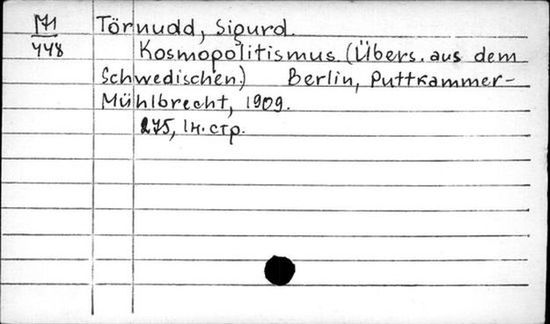 М1
448
Törnudd, Sigurd.
Kosmopolitismus. (Übers. aus dem
Schwedischen.) Berlin, Puttkammer-
Mühlbrecht, 1909.
275, 1н. стр.